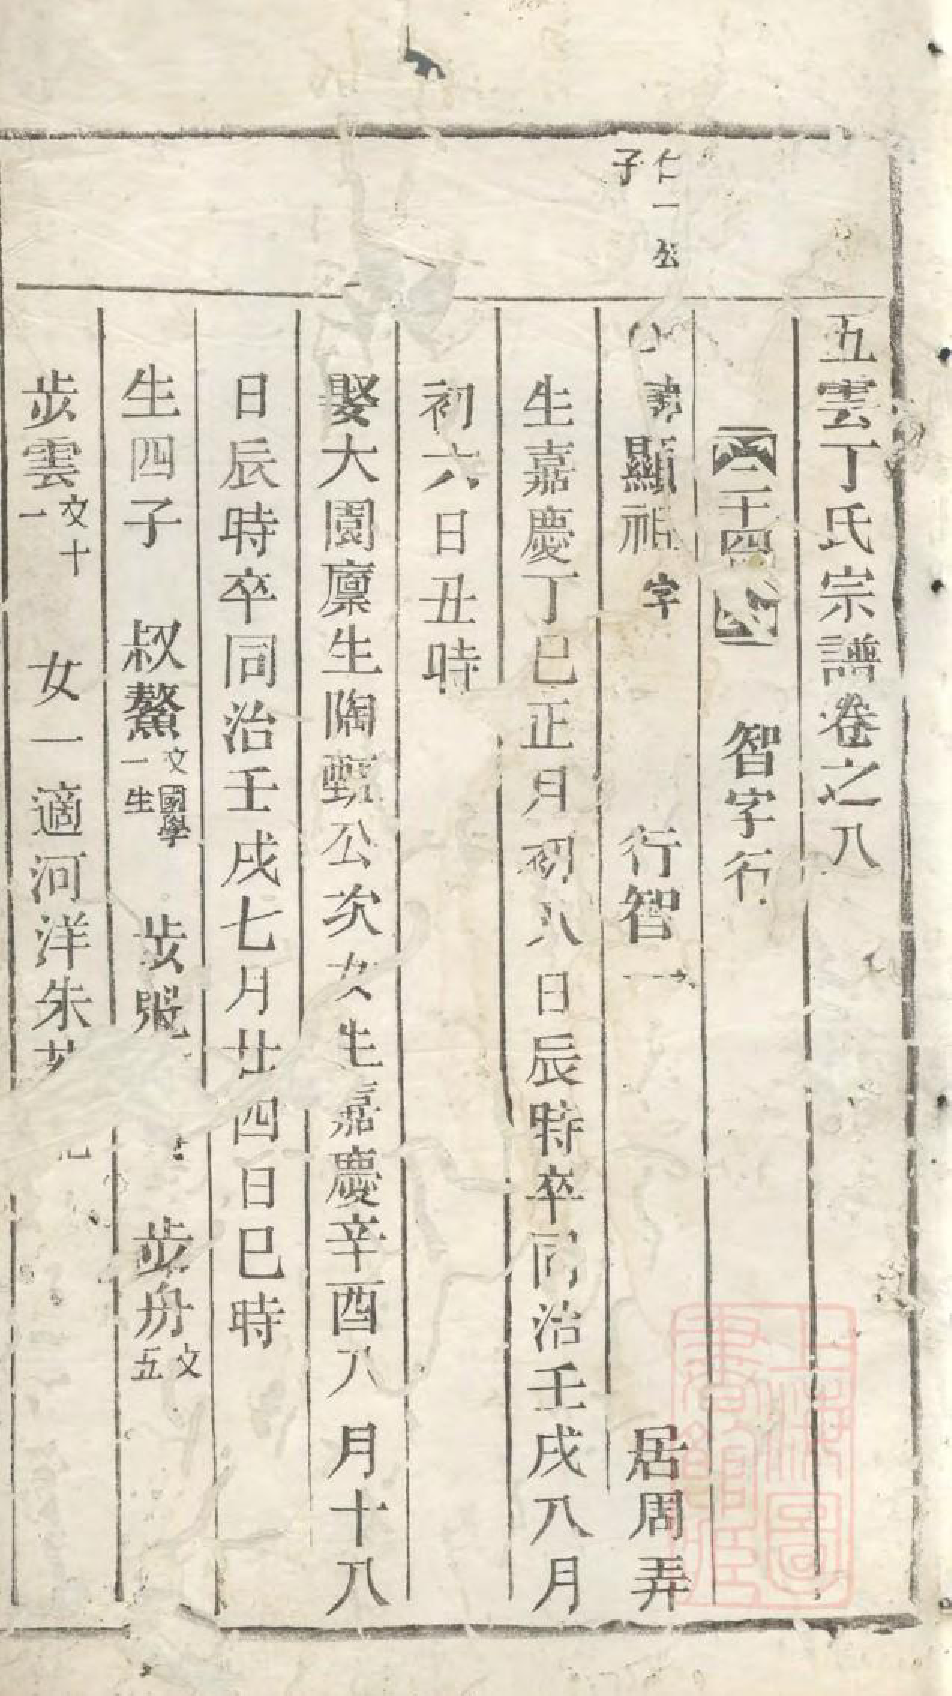 五雲丁氏宗譜卷之八
二十四世 智字行
仁一公
子
諱顯祖 字 行智一 居周弄
生嘉慶丁巳正月初八日辰特卒同治壬戌八月
初六日丑時
娶大園廩生陶甄公次女生嘉慶辛酉八月十八
日辰時卒同治壬戌七月廿四日巳時
生四子 叔鰲文一國學生 步 步舟文五
步雲文十一 女一適河洋朱
上海圖書館藏